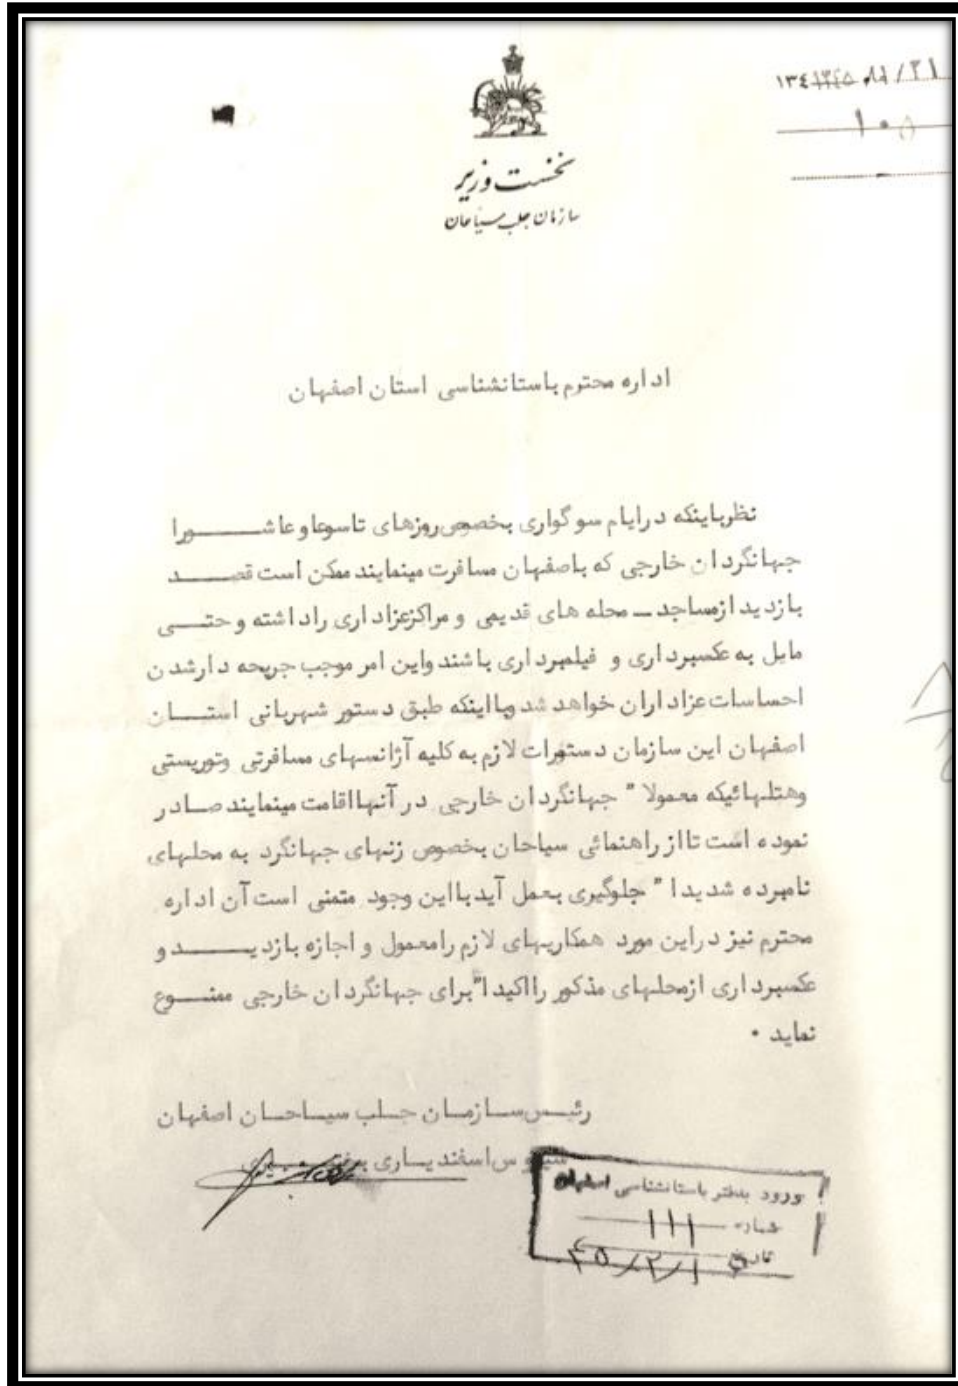 ۱۳۴
۱۰
نخست وزیر
سازمان جلب سیاحان
اداره محترم باستانشناسی استان اصفهان
نظرباینکه درایام سوگواری بخصوص روزهای تاسوعا و عاشورا
جهانگردان خارجی که باصفهان مسافرت مینمایند ممکن است قصد
بازدید ازمساجد ـ محله های قدیمی و مراکزعزاداری راداشته و حتی
مایل به عکسبرداری و فیلمبرداری باشند واین امر موجب جریحه دارشدن
احساسات عزاداران خواهد شد وبااینکه طبق دستور شهربانی استان
اصفهان این سازمان دستورات لازم به کلیه آژانسهای مسافرتی وتوریستی
وهتلهائیکه معمولا" جهانگردان خارجی در آنهااقامت مینمایند صادر
نموده است تااز راهنمائی سیاحان بخصوص زنهای جهانگرد به محلهای
نامبرده شدیدا" جلوگیری بعمل آید بااین وجود متمنی است آن اداره
محترم نیز دراین مورد همکاریهای لازم رامعمول و اجازه بازدید و
عکسبرداری ازمحلهای مذکور رااکیدا" برای جهانگردان خارجی ممنوع
نماید .
رئیس سازمان جلب سیاحان اصفهان
اسفندیاری
ورود بدفتر باستانشناسی اصفهان
شماره ۱۱۱
تاریخ